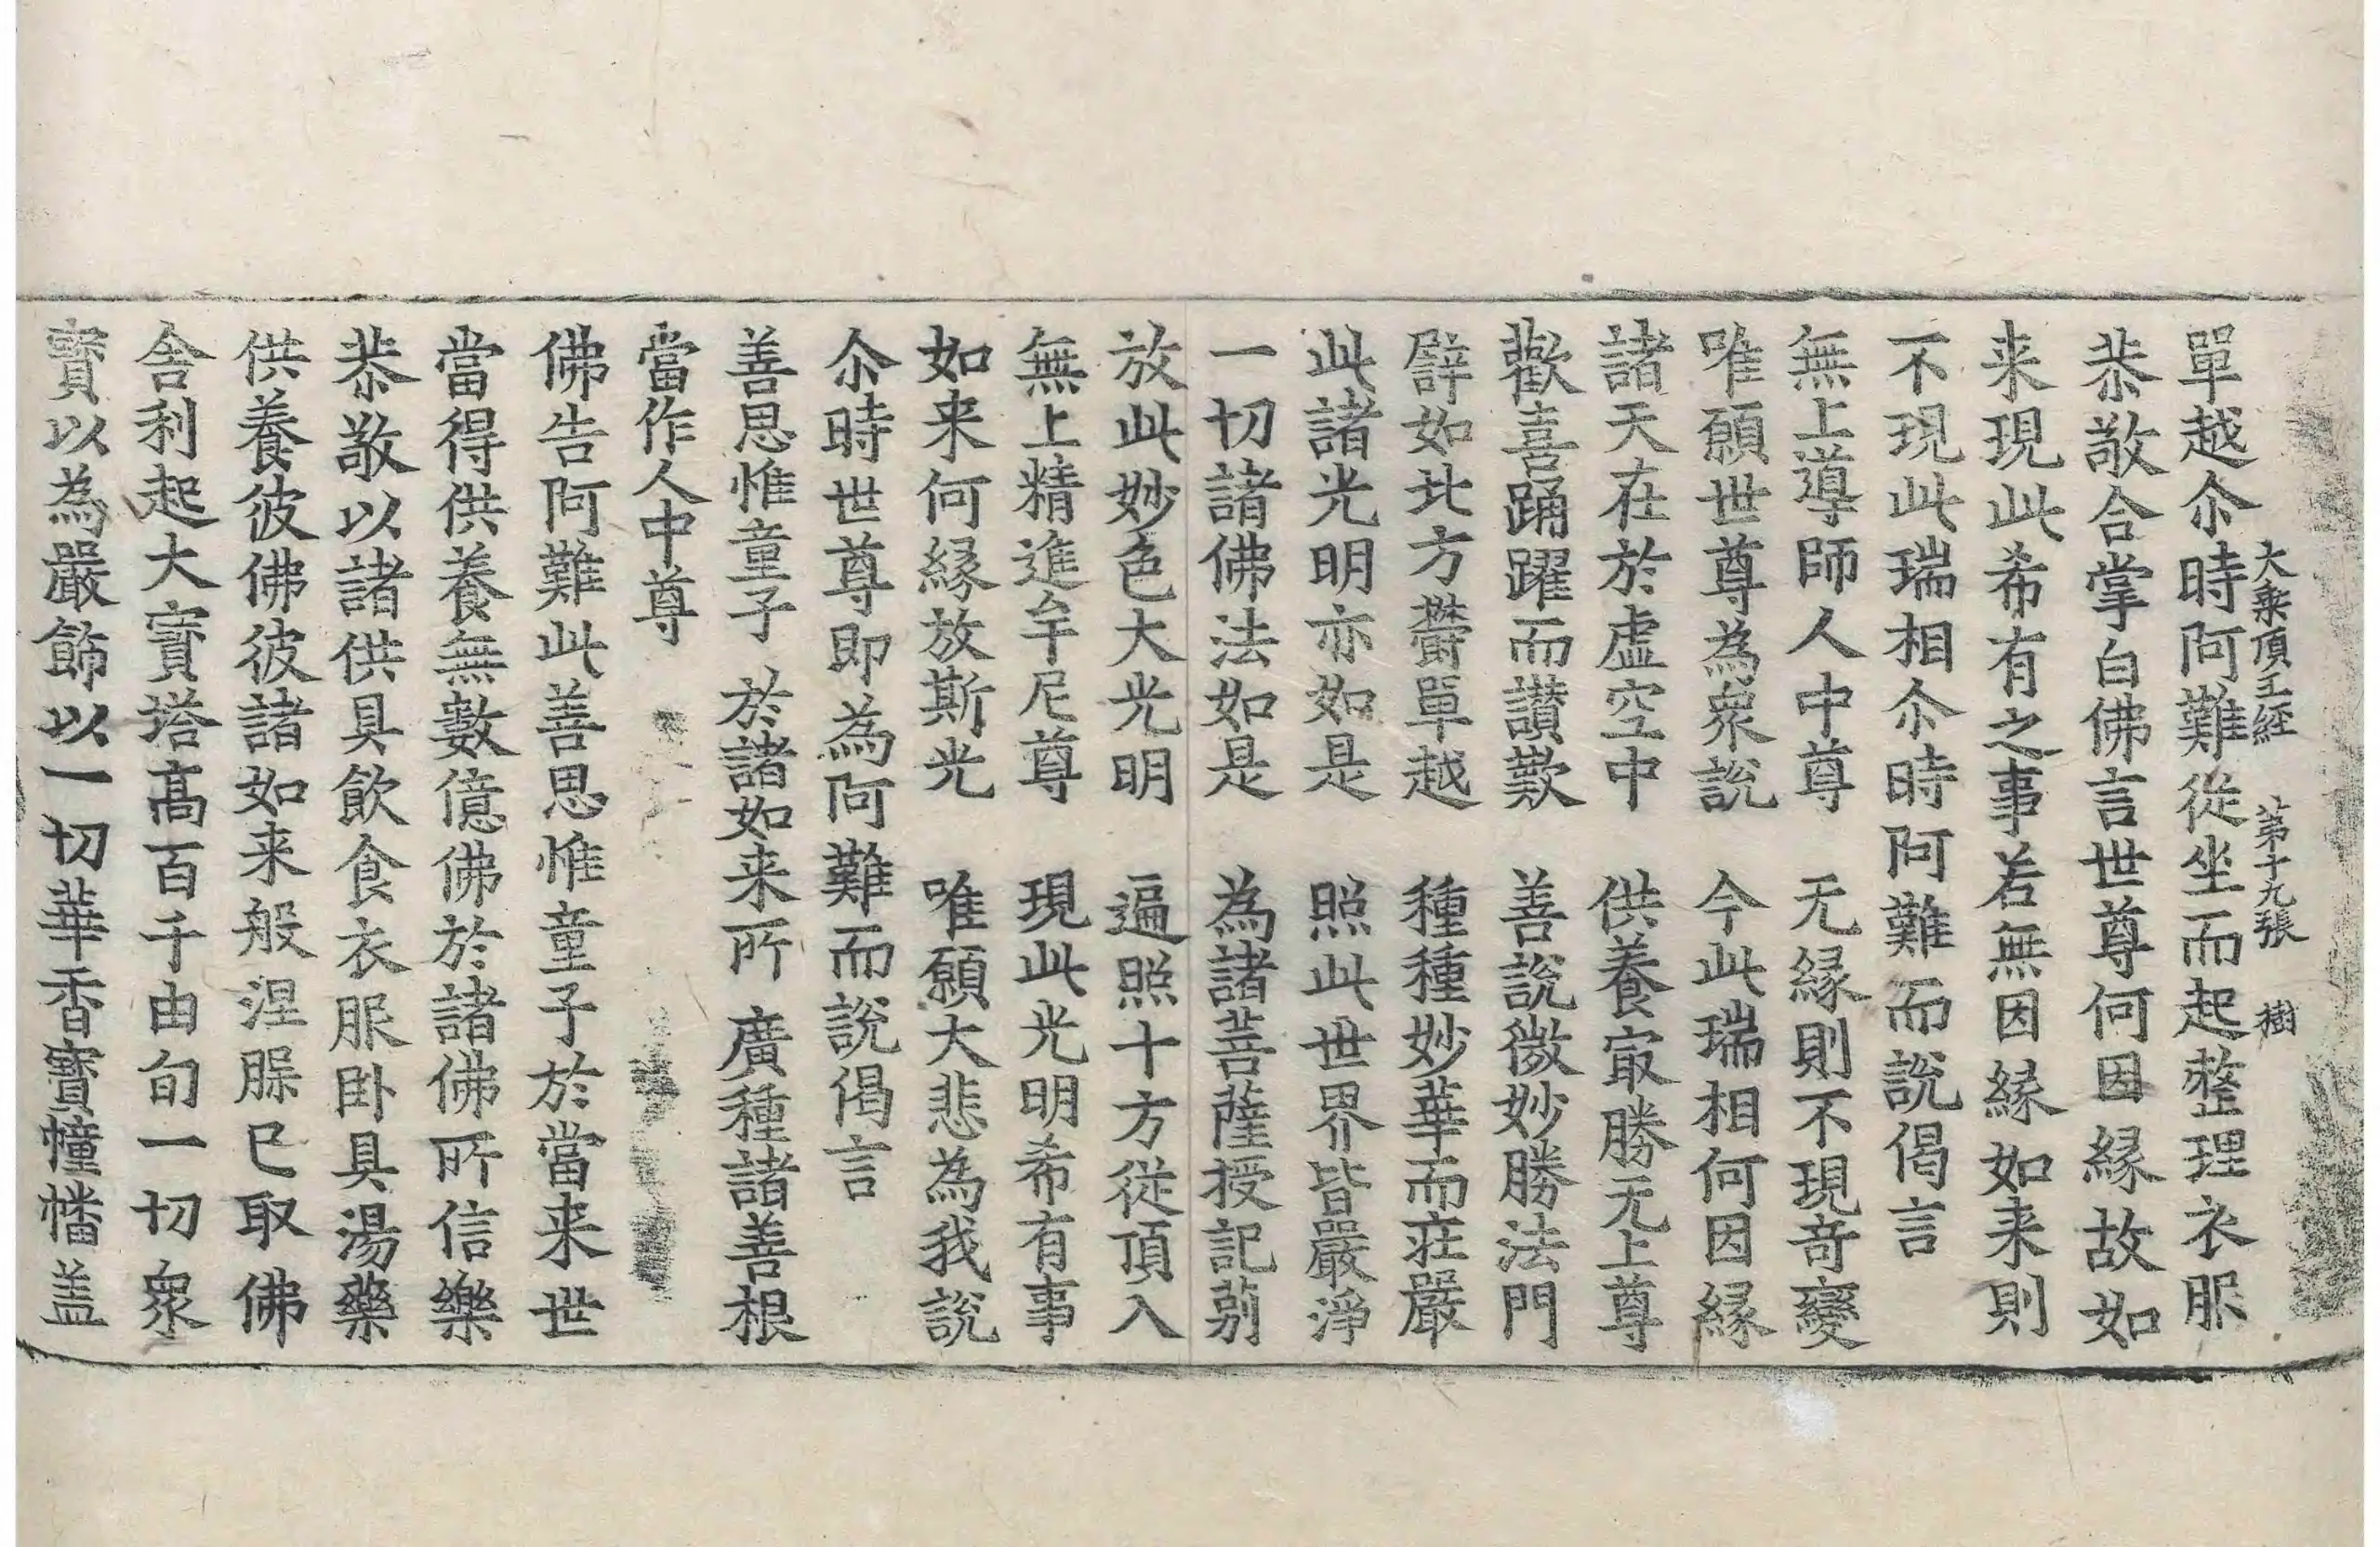 大乘頂王經　第十九張　樹
單越尒時阿難從坐而起整理衣服
恭敬合掌白佛言世尊何因緣故如
来現此希有之事若無因緣如来則
不現此瑞相尒時阿難而說偈言
無上導師人中尊　无緣則不現奇變
唯願世尊為衆說　今此瑞相何因緣
諸天在於虛空中　供養㝡勝无上尊
歡喜踊躍而讃歎　善說微妙勝法門
譬如北方欝單越　種種妙華而莊嚴
此諸光明亦如是　照此世界皆嚴淨
一切諸佛法如是　為諸菩薩授記莂
放此妙色大光明　遍照十方從頂入
無上精進牟尼尊　現此光明希有事
如来何緣放斯光　唯願大悲為我說
尒時世尊即為阿難而說偈言
善思惟童子　於諸如来所　廣種諸善根
當作人中尊
佛告阿難此善思惟童子於當来世
當得供養無數億佛於諸佛所信樂
恭敬以諸供具飲食衣服卧具湯藥
供養彼佛彼諸如来般涅槃已取佛
舎利起大寳塔髙百千由旬一切衆
寳以為嚴飾以一切華香寳幢幡盖